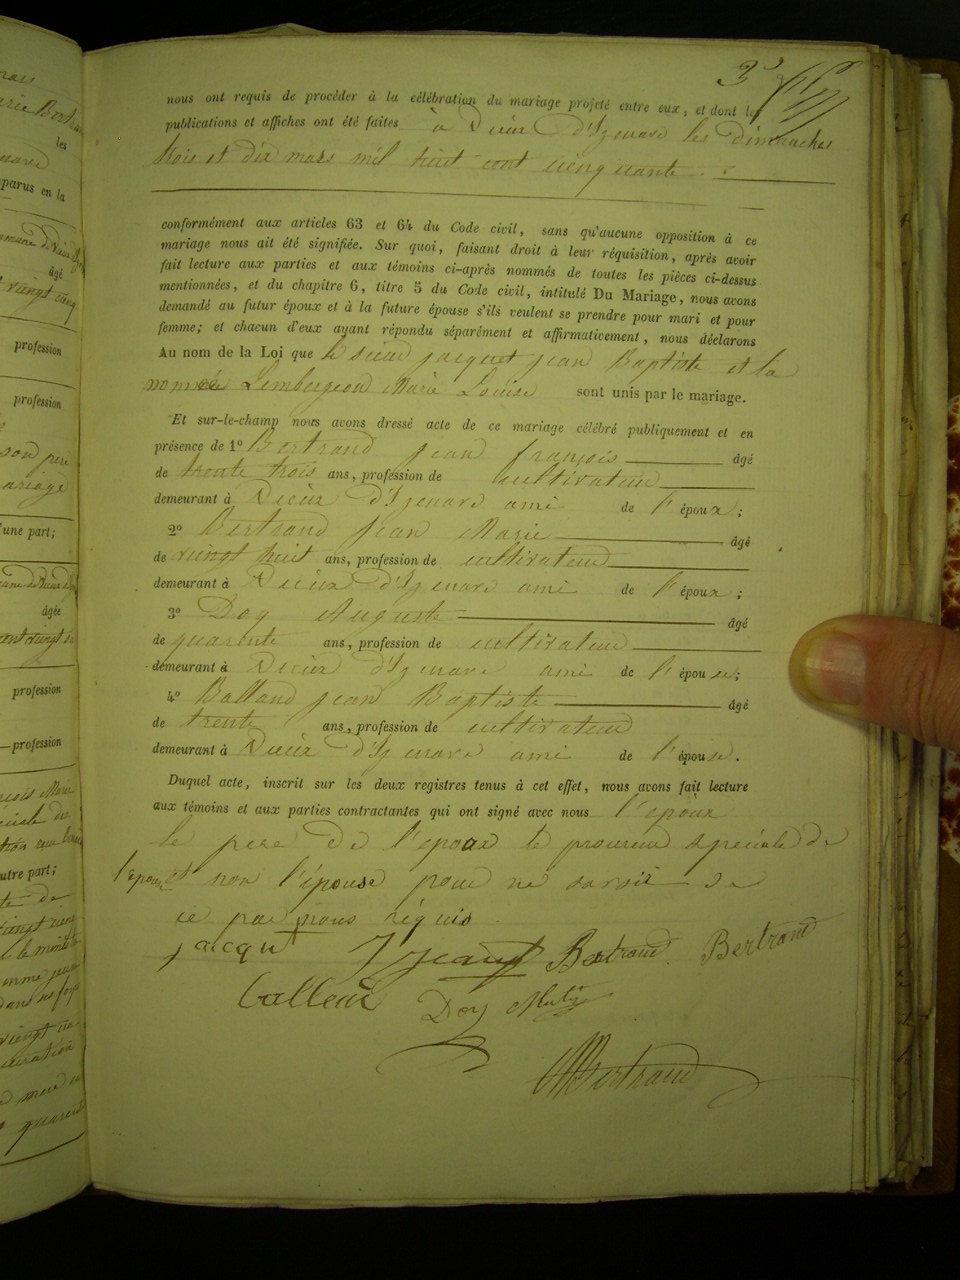 3
nous ont requis de procéder à la célébration du mariage projeté entre eux, et dont les
publications et affiches ont été faites à Dieux d'Izenave les dimanches
trois et dix mars mil huit cent cinquante
conformément aux articles 63 et 64 du Code civil, sans qu'aucune opposition à ce
mariage nous ait été signifiée. Sur quoi, faisant droit à leur réquisition, après avoir
fait lecture aux parties et aux témoins ci-après nommés de toutes les pièces ci-dessus
mentionnées, et du chapitre 6, titre 5 du Code civil, intitulé Du Mariage, nous avons
demandé au futur époux et à la future épouse s'ils veulent se prendre pour mari et pour
femme; et chacun d'eux ayant répondu séparément et affirmativement, nous déclarons
Au nom de la Loi que le sieur jacquet jean Baptiste et la
nommée Marie Louise sont unis par le mariage.
Et sur-le-champ nous avons dressé acte de ce mariage célébré publiquement et en
présence de 1º Bertrand jean françois âgé
de trente trois ans, profession de cultivateur
demeurant à Dieux d'Izenave ami de l'époux;
2º Bertrand jean Marie âgé
de vingt huit ans, profession de cultivateur
demeurant à Dieux d'Izenave ami de l'époux;
3º Doy Auguste âgé
de quarente ans, profession de cultivateur
demeurant à Dieux d'Izenave ami de l'épouse;
4º Balland jean Baptiste âgé
de trente ans, profession de cultivateur
demeurant à Dieux d'Izenave ami de l'épouse.
Duquel acte, inscrit sur les deux registres tenus à cet effet, nous avons fait lecture
aux témoins et aux parties contractantes qui ont signé avec nous l'époux
le pere de l'époux le procureur spéciale de
l'épouse et non l'épouse pour ne savoir de
ce par nous réquis
jacquet Bertrand Bertrand
Doy
Bertrand